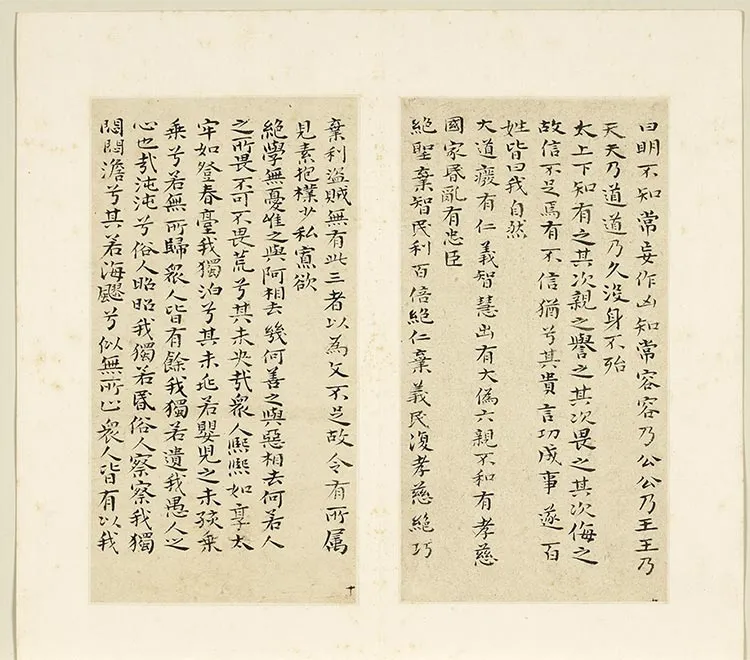 曰明不知常妄作凶知常容容乃公公乃王王乃
天天乃道道乃久没身不殆
太上下知有之其次親之譽之其次畏之其次侮之
故信不足焉有不信猶兮其貴言功成事遂百
姓皆曰我自然
大道廢有仁義智慧出有大偽六親不和有孝慈
國家昬亂有忠臣
絕聖棄智民利百倍絕仁棄義民復孝慈絕巧
棄利盜賊無有此三者以為文不足故令有所属
見素抱樸少私寡欲
絕學無憂惟之與阿相去幾何善之與惡相去何若人
之所畏不可不畏荒兮其未央哉衆人熙熙如享太
牢如登春臺我獨泊兮其未兆若嬰兒之未孩乘
乘兮若無所歸衆人皆有餘我獨若遺我愚人之
心也哉沌沌兮俗人昭昭我獨若昬俗人察察我獨
悶悶澹兮其若海飂兮似無所止衆人皆有以我
十